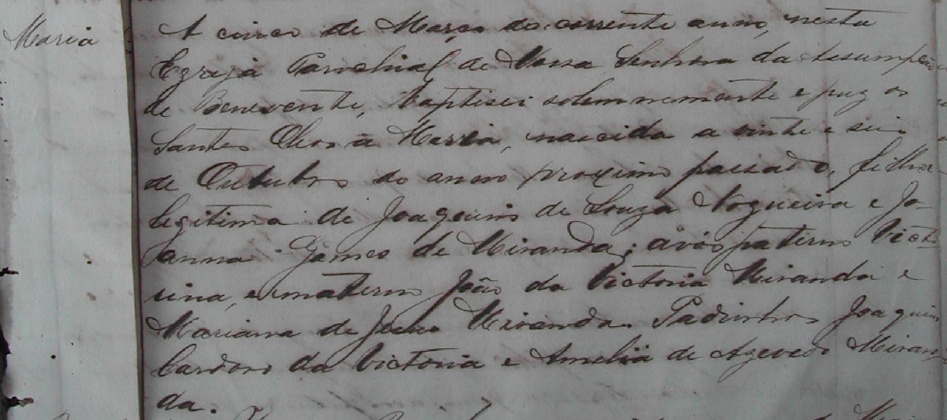 Maria
A cinco de Março do corrente anno, nesta
Egreja Parochial de Nossa Senhora da Assumpção
de Benevente, baptisei solemnemente e puz os
Santos Oleos à Maria, nascida a vinte e seis
de Outubro do anno proximo passado, filha
legitima de Joaquim de Souza Nogueira e Jo-
anna Gomes de Miranda; avós paterno
e materno João da Victoria Miranda e
Mariana de Miranda. Padrinhos Joaquim
Cardoso da Victoria e Amelia de Azevedo Miran-
da.